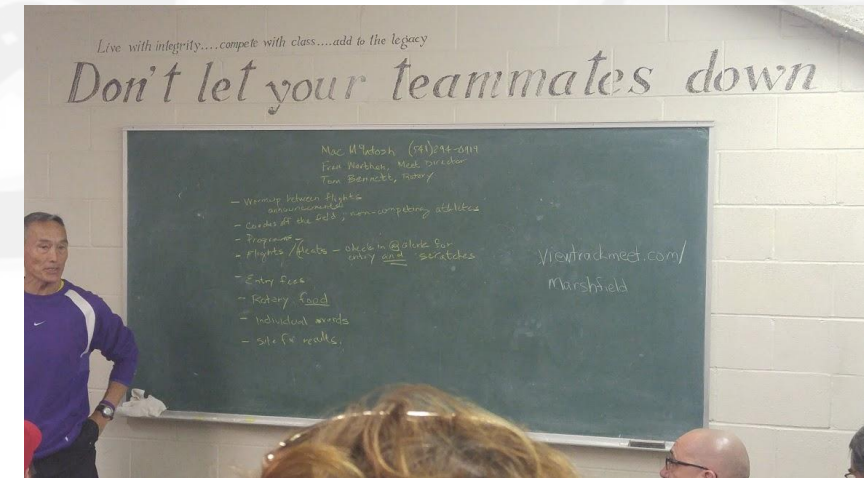 Live with integrity....compete with class....add to the legacy
Don't let your teammates down
Mac McIntosh (541)294-0919
Fran Worthen, Meet Director
Tom Bennett, Rotary
- Warmup between flights
announcements
- Coaches off the field; non-competing athletes
- Programs
- Flights/Heats - check in @ clerk for
entry and scratches
- Entry fees
- Rotary food
- Individual awards
- Site for results.
Viewtrackmeet.com/
Marshfield